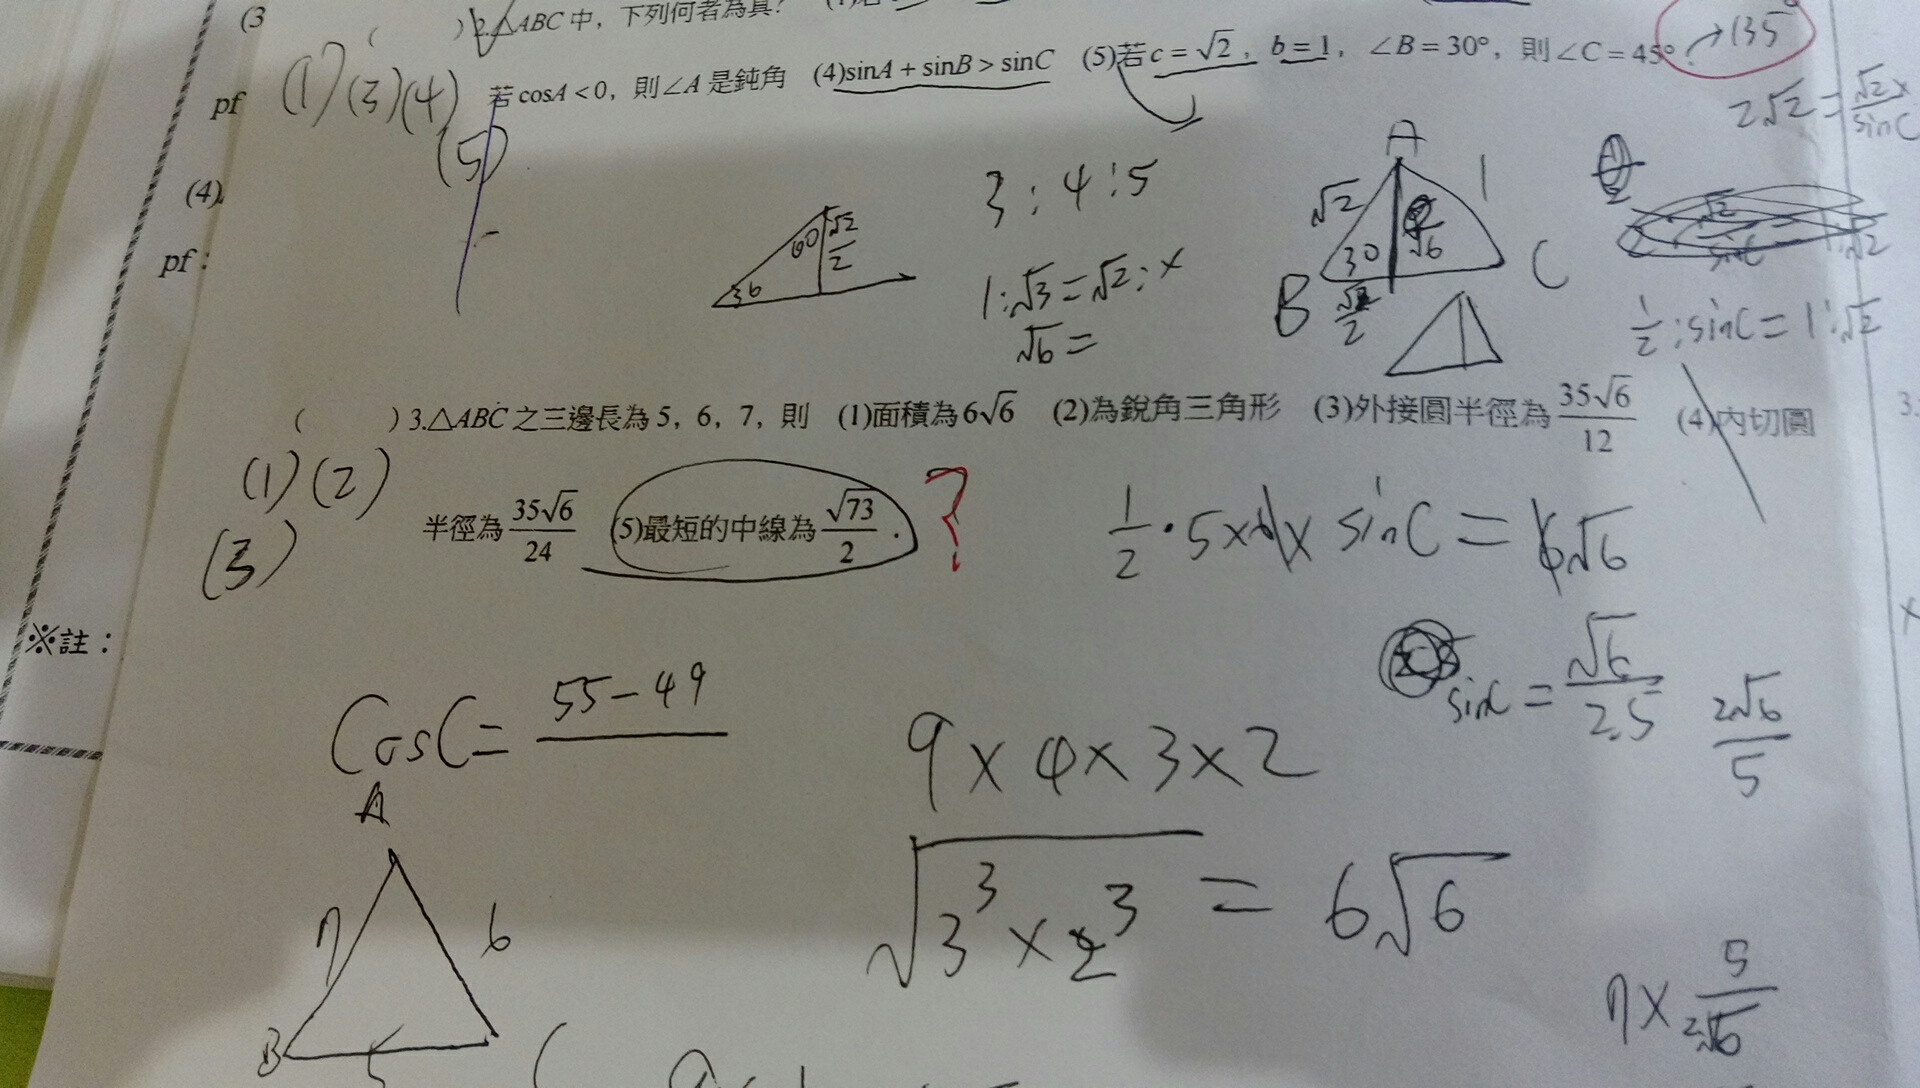 (3
( )2.△ABC中，下列何者為真？
pf (1)(3)(4) 若cosA<0，則∠A是鈍角 (4)sinA+sinB>sinC (5)若c=√2，b=1，∠B=30°，則∠C=45° →135°
(5)
2√2=√2x/sinC
(4)
pf：
30 60 √2/2
3:4:5
1:√3=√2:x
√6=
A
√2 1
30 √6
B C
1/2:sinC=1:√2
( )3.△ABC之三邊長為5，6，7，則 (1)面積為6√6 (2)為銳角三角形 (3)外接圓半徑為35√6/12 (4)內切圓
3.
(1)(2)
(3)
半徑為35√6/24 (5)最短的中線為√73/2． ?
1/2·5×6×sinC=6√6
※註：
sinC=√6/2.5 2√6/5
CosC=55-49
9×4×3×2
√3³×2³=6√6
A
7 6
B 5
7×5/2√6